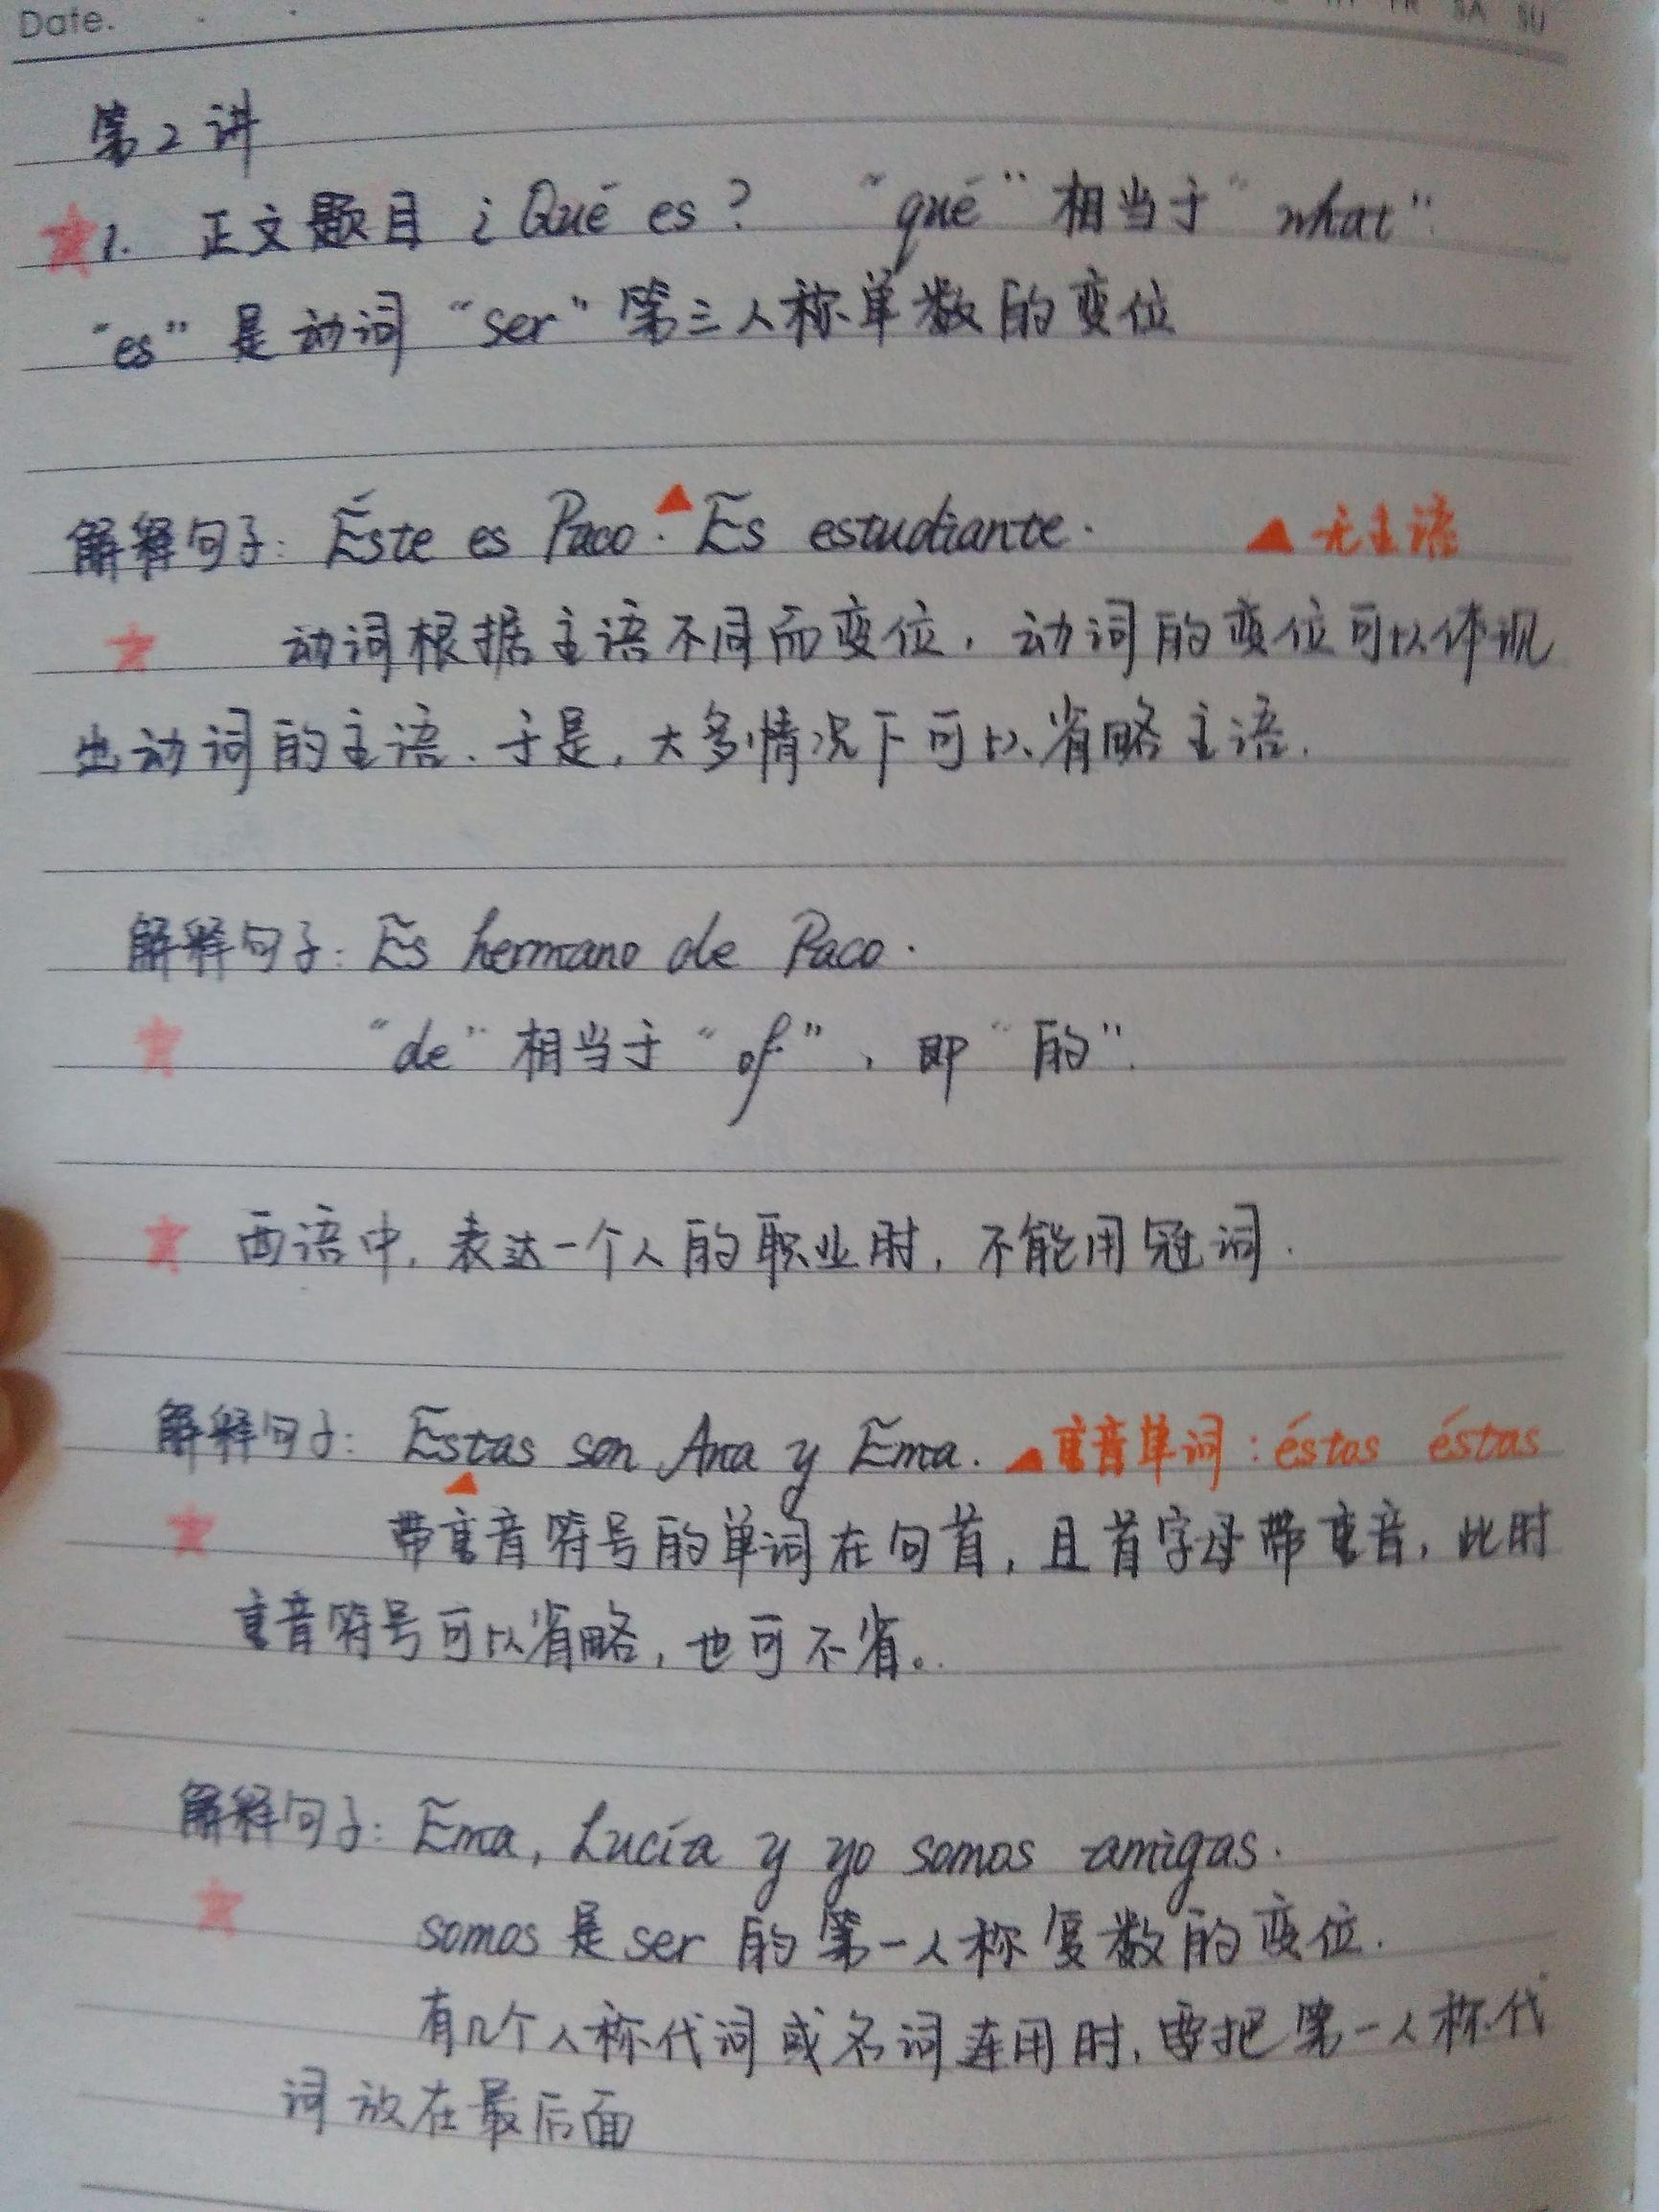 Date.
TH FR SA SU
第2讲
1. 正文题目 ¿Qué es? “qué”相当于“what”.
“es”是动词“ser”第三人称单数的变位
解释句子: Éste es Paco. Es estudiante. 无主语
动词根据主语不同而变位, 动词的变位可以体现
出动词的主语. 于是, 大多情况下可以省略主语.
解释句子: Es hermano de Paco.
“de”相当于“of”, 即“的”.
西语中, 表达一个人的职业时, 不能用冠词.
解释句子: Estas son Ana y Ema. 重音单词: éstos éstas
带重音符号的单词在句首, 且首字母带重音, 此时
重音符号可以省略, 也可不省。
解释句子: Ema, Lucía y yo somos amigas.
somos 是 ser 的第一人称复数的变位.
有几个人称代词或名词连用时, 要把第一人称代
词放在最后面